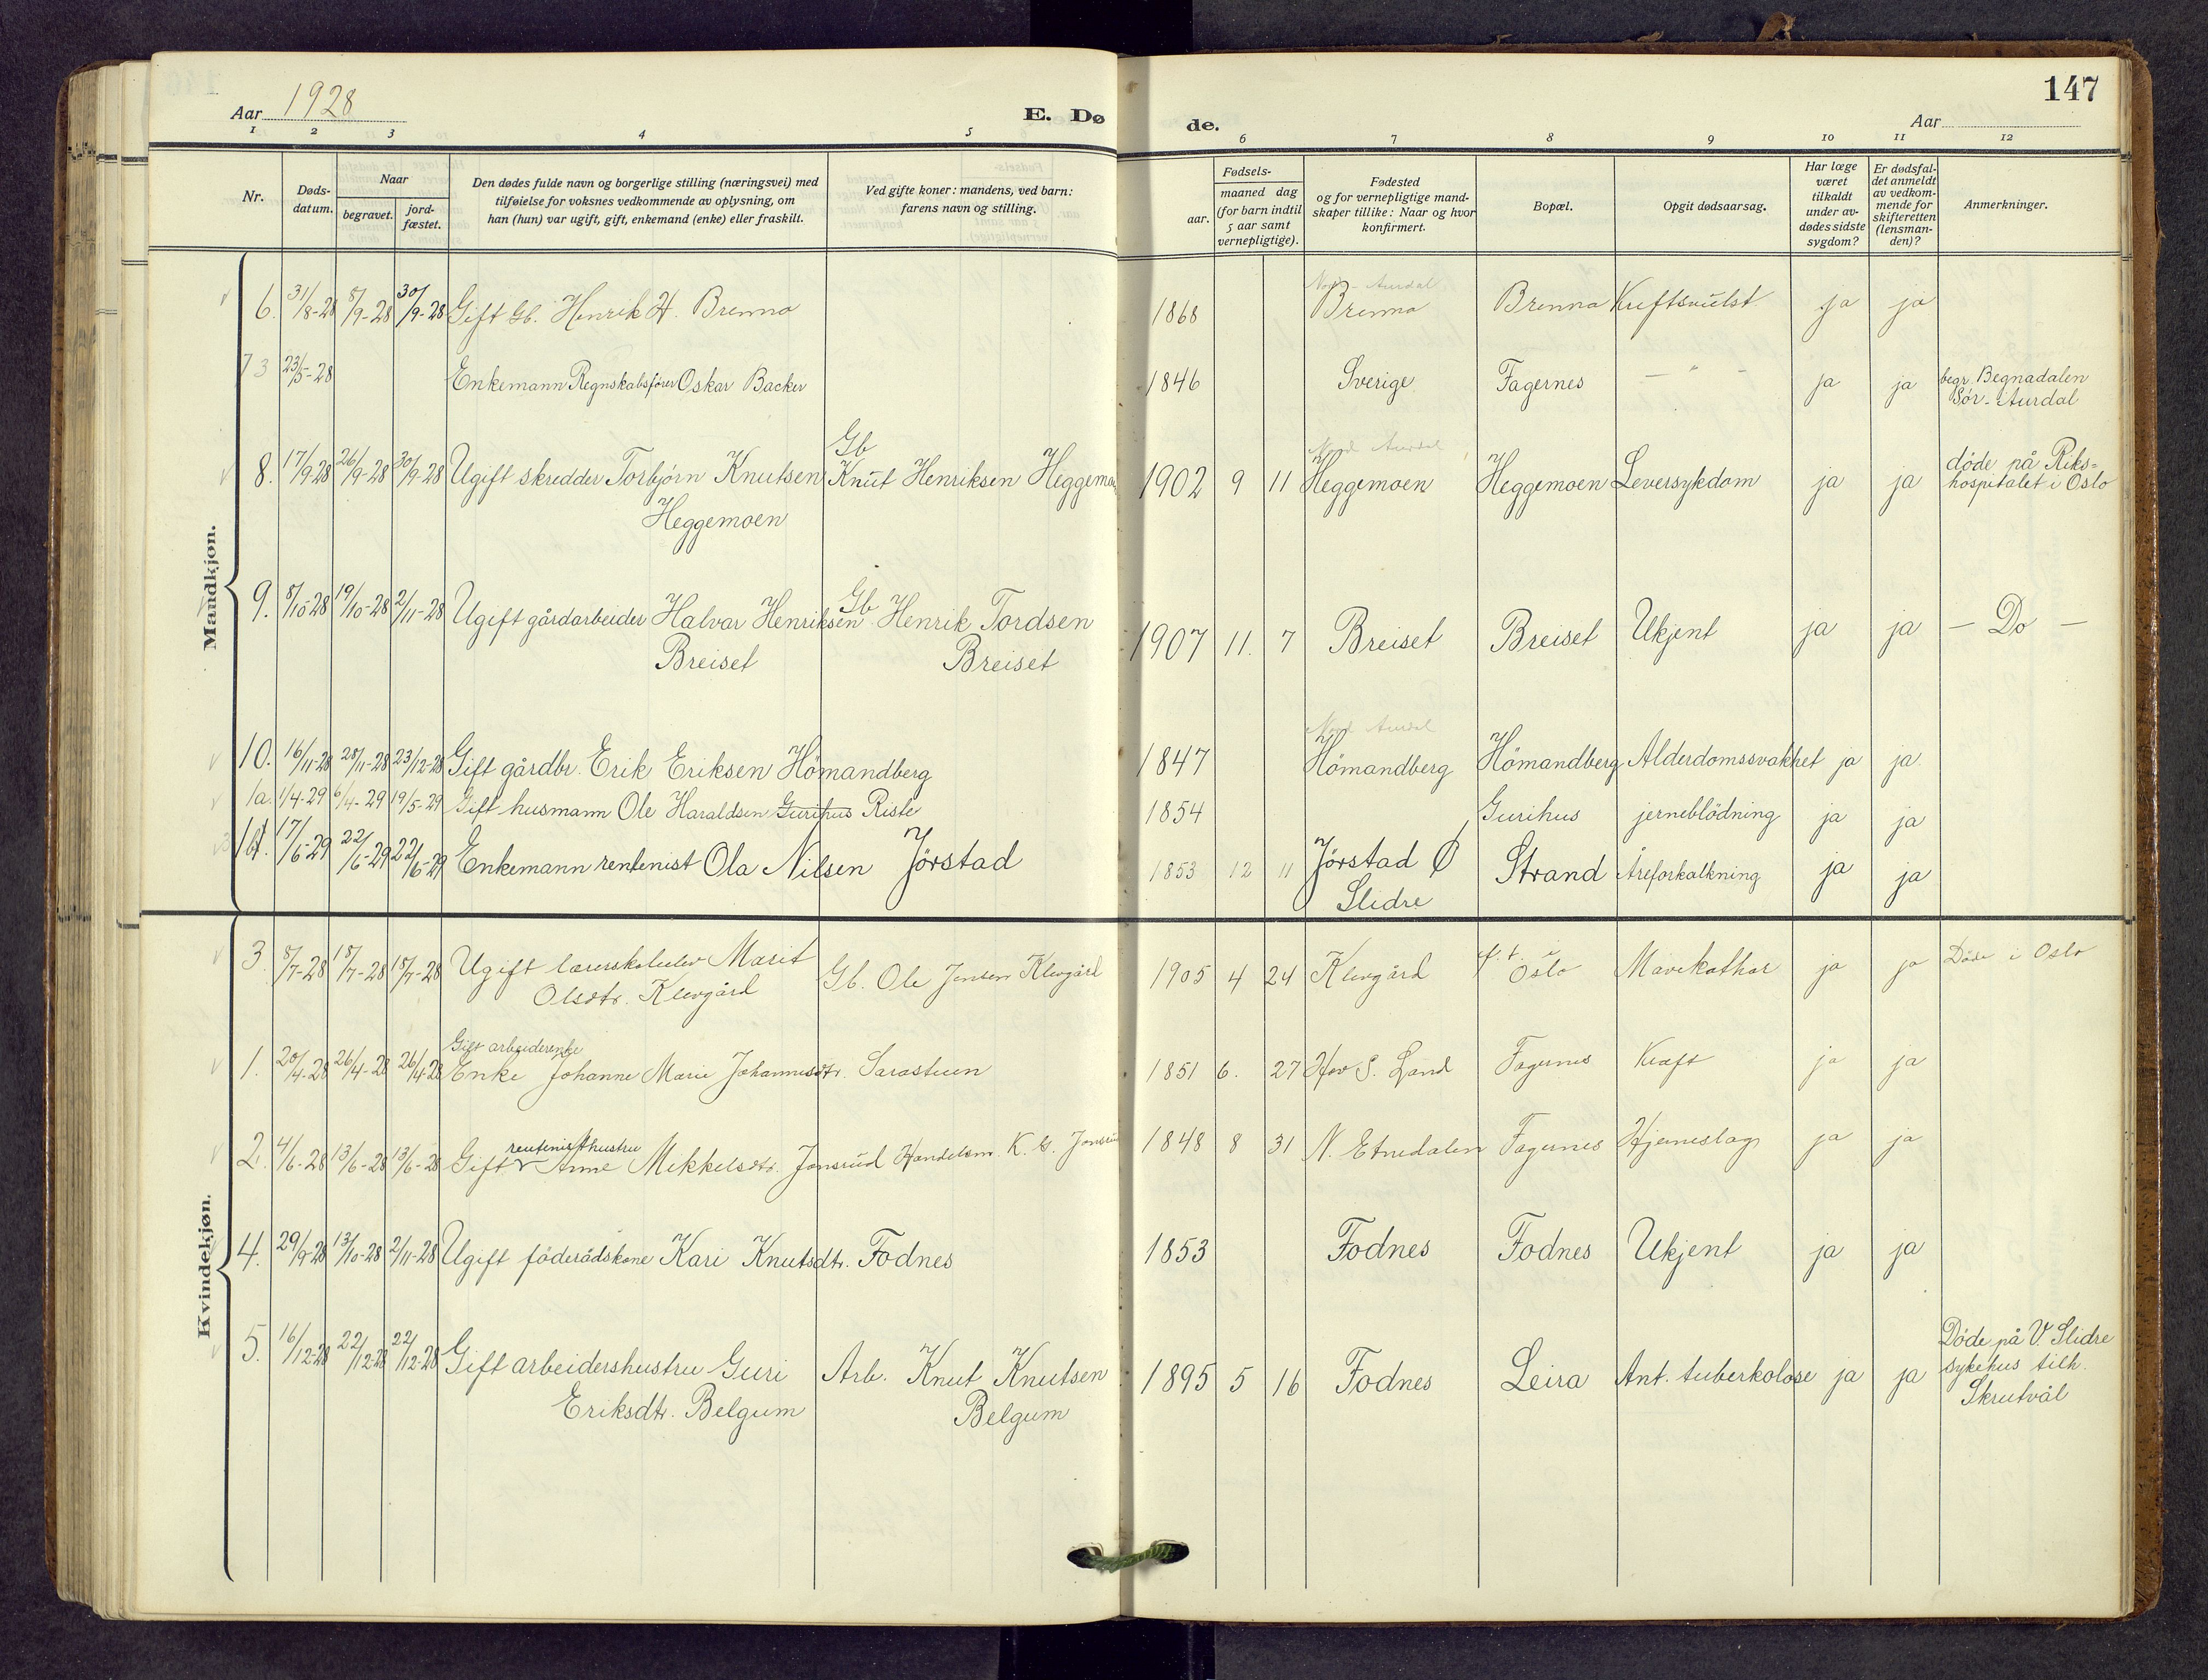 147
Aar 1928
E. Dø
de.
Aar
1 2 3 4 5 6 7 8 9 10 11 12
Nr.
Døds-
datum.
Naar
begravet.
jord-
fæstet.
Den dødes fulde navn og borgerlige stilling (næringsvei) med
tilføielse for voksnes vedkommende av oplysning, om
han (hun) var ugift, gift, enkemand (enke) eller fraskilt.
Ved gifte koner: mandens, ved barn:
farens navn og stilling.
Fødsels-
aar.
maaned dag
(for barn indtil
5 aar samt
vernepligtige).
Fødested
og for vernepligtige mand-
skaper tillike: Naar og hvor
konfirmert.
Bopæl.
Opgit dødsaarsag.
Har læge
været
tilkaldt
under av-
dødes sidste
sygdom?
Er dødsfal-
det anmeldt
av vedkom-
mende for
skifteretten
(lensman-
den)?
Anmerkninger.
Mandkjøn.
Nord-Aurdal
6. 31/8-28 8/9-28 30/9-28 Gift Gb. Henrik H. Brenna 1868 Brenna Brenna Kreftsvulst ja ja
7 3 23/5-28 Enkemann Regnskabsfører Oskar Backer 1846 Sverige Fagernes — " — ja ja begr. Begnadalen
Sör-Aurdal
Gb
Nord Aurdal
8. 17/9-28 26/9-28 30/9-28 Ugift skredder Torbjörn Knutsen Knut Henriksen Heggemoen 1902 9 11 Heggemoen Heggemoen Leversykdom ja ja döde på Riks-
hospitalet i Oslo
Heggemoen
Gb
9. 8/10-28 19/10-28 2/11-28 Ugift gårdarbeider Halvar Henriksen Henrik Tordsen 1907 11. 7 Breiset Breiset Ukjent ja ja — Do —
Breiset Breiset
Nord Aurdal
10. 16/11-28 28/11-28 23/12-28 Gift gårdbr. Erik Eriksen Hömandberg 1847 Hömandberg Hömandberg Alderdomssvakhet ja ja.
1a. 1/4-29 6/4-29 19/5-29 Gift husmann Ole Haraldsen Gurihus Riste 1854 Gurihus jerneblödning ja ja
1b. 17/6-29 22/6-29 22/6-29 Enkemann rentenist Ola Nilsen Jörstad 1853 12 11 Jörstad Ø Strand Åreforkalkning ja ja
Slidre
Kvindekjøn.
3. 8/7-28 18/7-28 18/7-28 Ugift lærerskoleelev Marit Gb. Ole Jensen Klevgård 1905 4 24 Klevgård p. t. i Oslo Mavekathar ja ja Döde i Oslo
Olsdtr. Klevgård
Gift arbeiderenke
1. 20/4-28 26/4-28 26/4-28 Enke Johanne Marie Johannesdtr. Sarasteen 1851 6. 27 Hov S. Land Fagernes Kræft ja ja
rentenisthustru
2. 4/6-28 13/6-28 13/6-28 Gift Anne Mikkelsdtr. Jonsrud Handelsm. K. G. Jonsrud 1848 8 31 N. Etnedalen Fagernes Hjerneslag ja ja
4. 29/9-28 13/10-28 2/11-28 Ugift föderådskone Kari Knutsdtr. Fodnes 1853 Fodnes Fodnes Ukjent ja ja
5. 16/12-28 22/12-28 22/12-28 Gift arbeidershustru Guri Arb. Knut Knutsen 1895 5 16 Fodnes Leira Ant. tuberkolose ja ja Döde på V. Slidre
sykehus tilh.
Skrutvål
Eriksdtr. Belgum Belgum